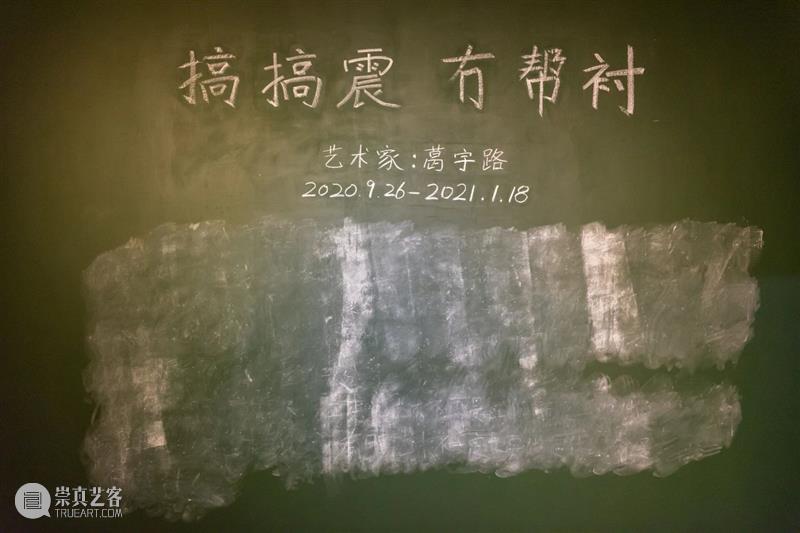 搞搞震 冇帮衬
艺术家:葛宇路
2020.9.26-2021.1.18
崇真艺客
TRUEART.COM